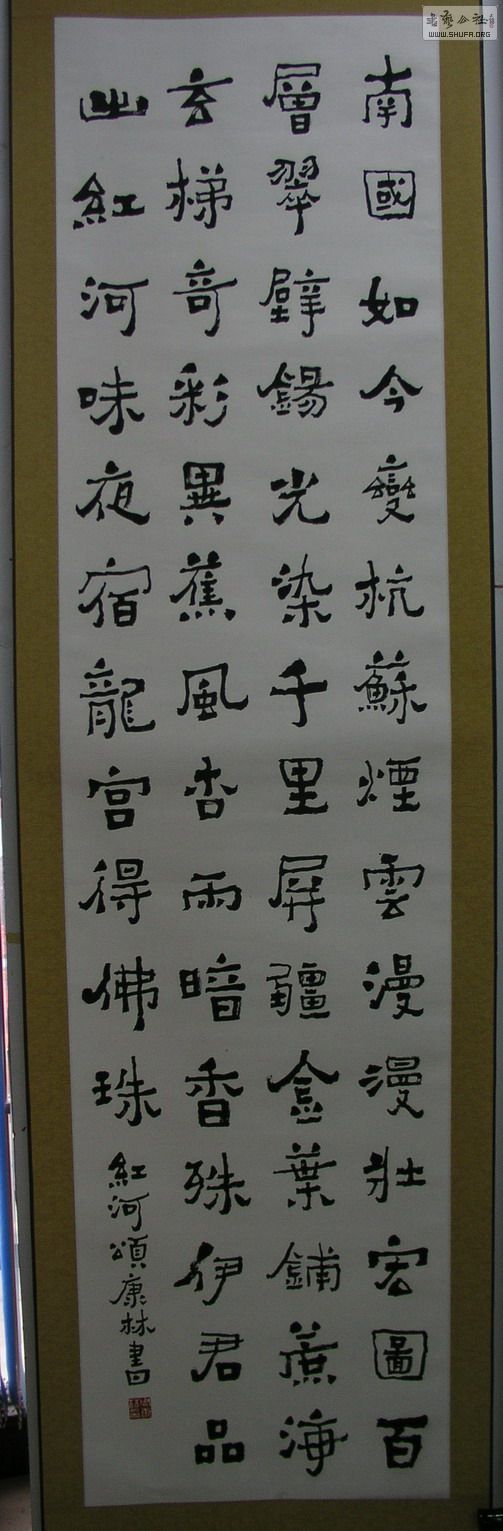 南國如今變杭蘇煙雲漫漫壯宏圖百
層翠壁錫光染千里屏疆金葉鋪蔗海
玄梯奇彩異蕉風杏雨暗香殊伊君品
出紅河味夜宿龍宮得佛珠
紅河頌康林書
書艺公社
WWW.SHUFA.ORG